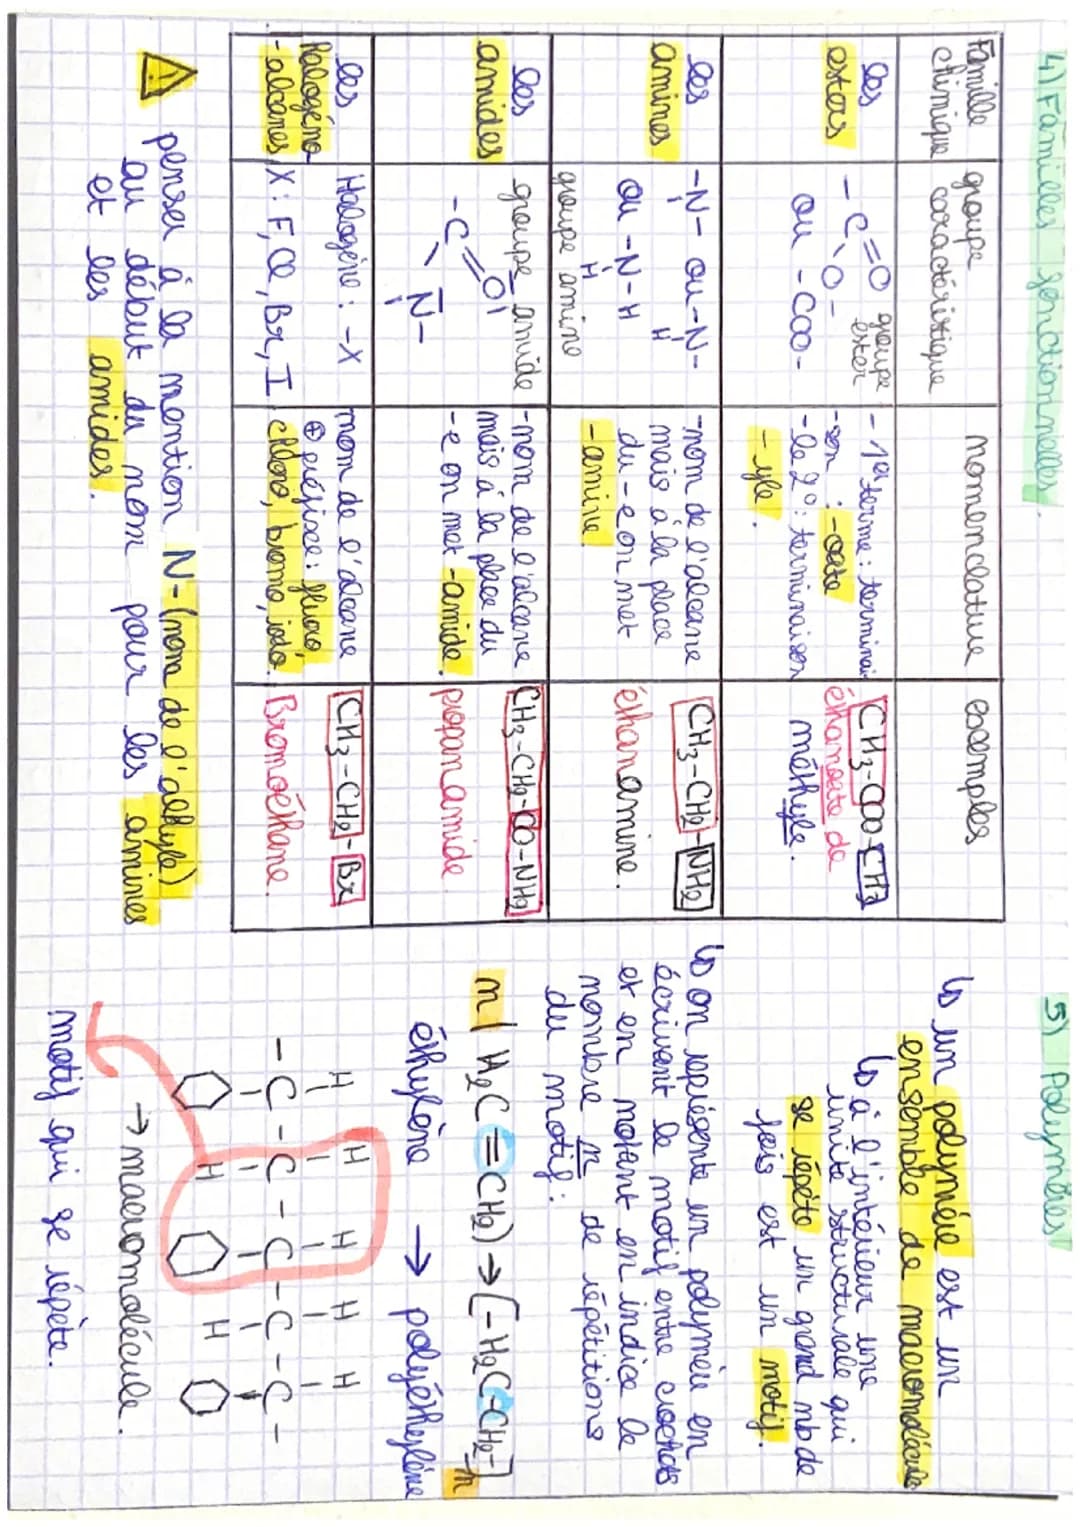 4) Familles fonctionnelles.
Famille chimique
groupe caractéristique
nomenclature
exemples
les esters
-C=O groupe ester
O-
ou -COO-
- 1er terme : terminai-
-son : -oate
- le 2° : terminaison
-yle.
CH3-COO-CH3
éthanoate de
méthyle.
les amines
-N- ou -N-
H
ou -N-H
H
groupe amine
-nom de l'alcane
mais à la place
du -e on met
-amine.
CH3-CH2-NH2
éthanamine.
les amides
groupe amide
-C=O
N-
-nom de l'alcane
mais à la place du
-e on met -amide.
CH3-CH2-CO-NH2
propanamide.
les halogéno-
-alcanes
Halogène : -X
X : F, Cl, Br, I
nom de l'alcane
⊕ préfixe : fluoro,
chloro, bromo, iodo.
CH3-CH2-Br
Bromoéthane.
⚠ penser à la mention N-(nom de l'alkyle)
au début du nom pour les amines
et les amides.
5) Polymères
↳ un polymère est un
ensemble de macromolécules
↳ à l'intérieur une
unité structurale qui
se répète un grand nb de
fois est un motif.
↳ on représente un polymère en
écrivant le motif entre crochets
et en notant en indice le
nombre n de répétitions
du motif :
n(H2C=CH2) → [-H2C-CH2-]n
éthylène → polyéthylène
H H H H H
-C-C-C-C-C-
H H
→ macromolécule.
motif qui se répète.